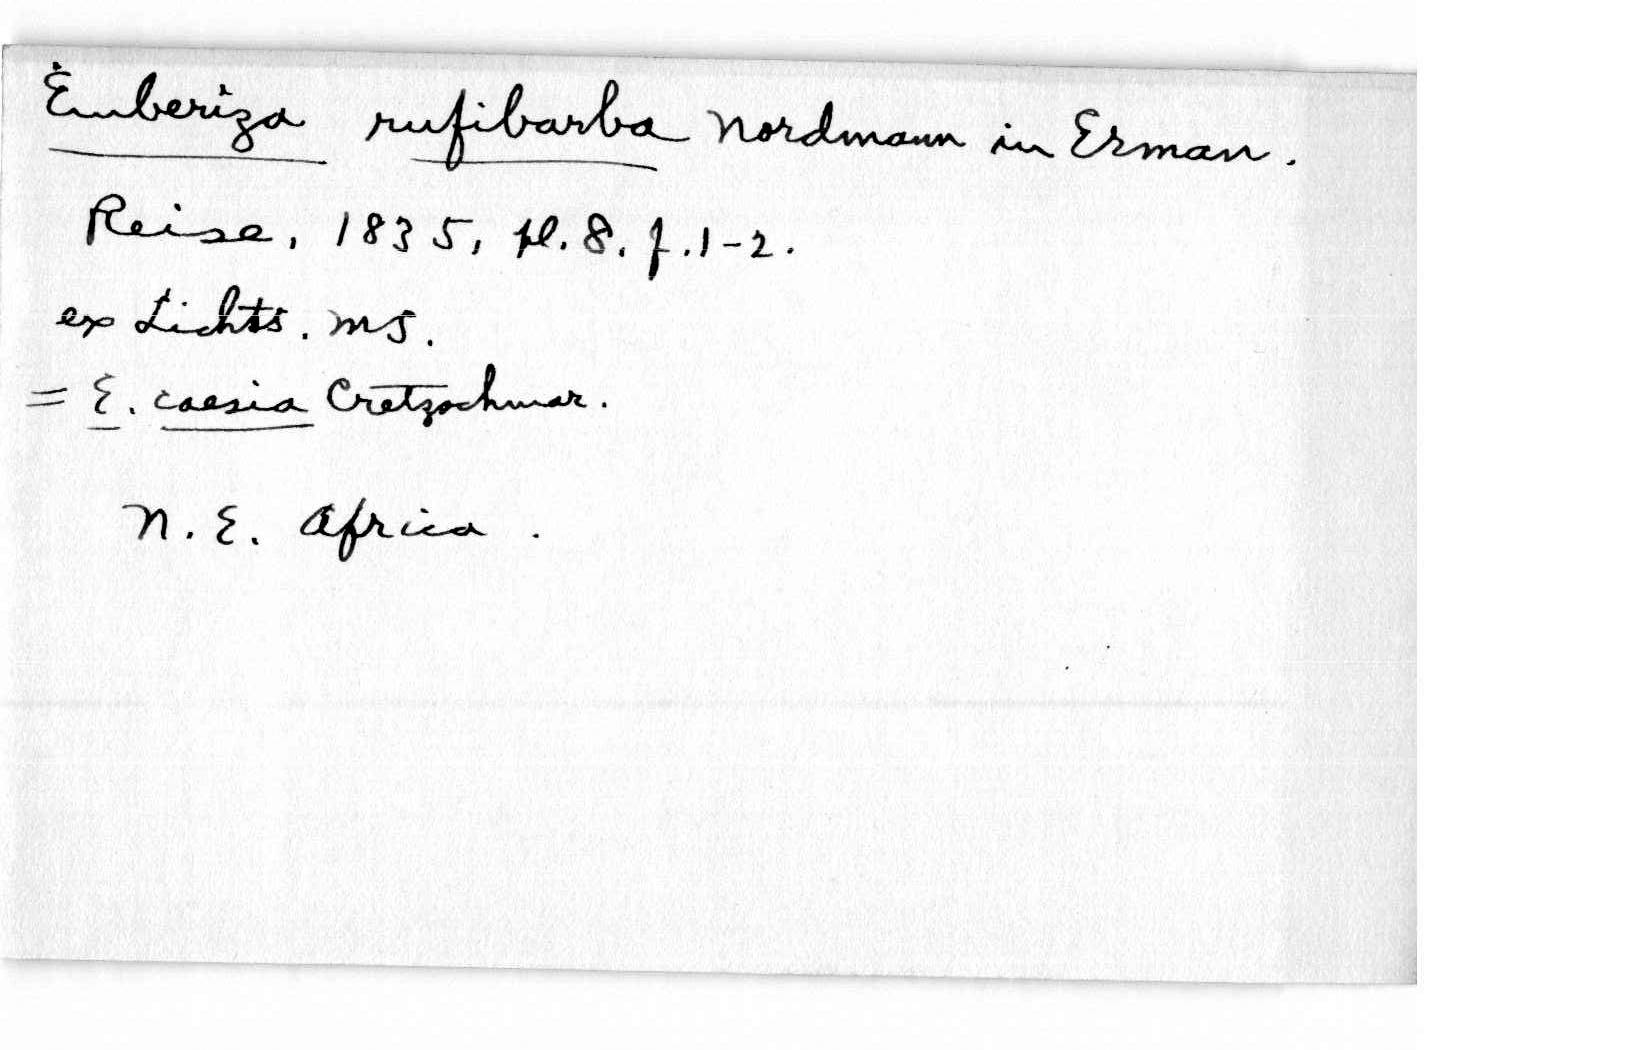 Emberiza rufibarba Nordmann in Erman.
Reise, 1835, pl. 8. f. 1-2.
ex Lichts. MS.
= E. caesia Cretzschmar.
N. E. Africa.